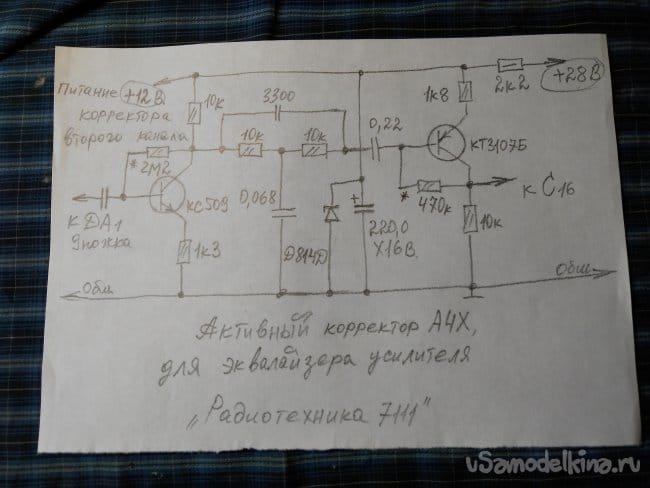 Питание +12В
корректора
второго канала
10к
3300
1к8
2к2
+28В
0,22
КТ3107Б
* 2М2
10к
10к
КС509
0,068
* 470к
к С16
к DA1
9ножка
1к3
Д814Д
+
220,0
Х16В
10к
Общ
Общ
Активный корректор АЧХ,
для эквалайзера усилителя
„Радиотехника 7111"
vSamodelkina.ru